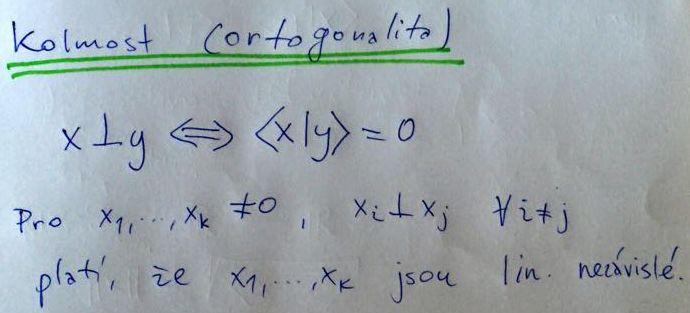 Kolmost (ortogonalita)
x ⊥ y ⟺ ⟨x|y⟩ = 0
Pro x₁, ..., xₖ ≠ 0, xᵢ ⊥ xⱼ ∀ i ≠ j
platí, že x₁, ..., xₖ jsou lin. nezávislé.